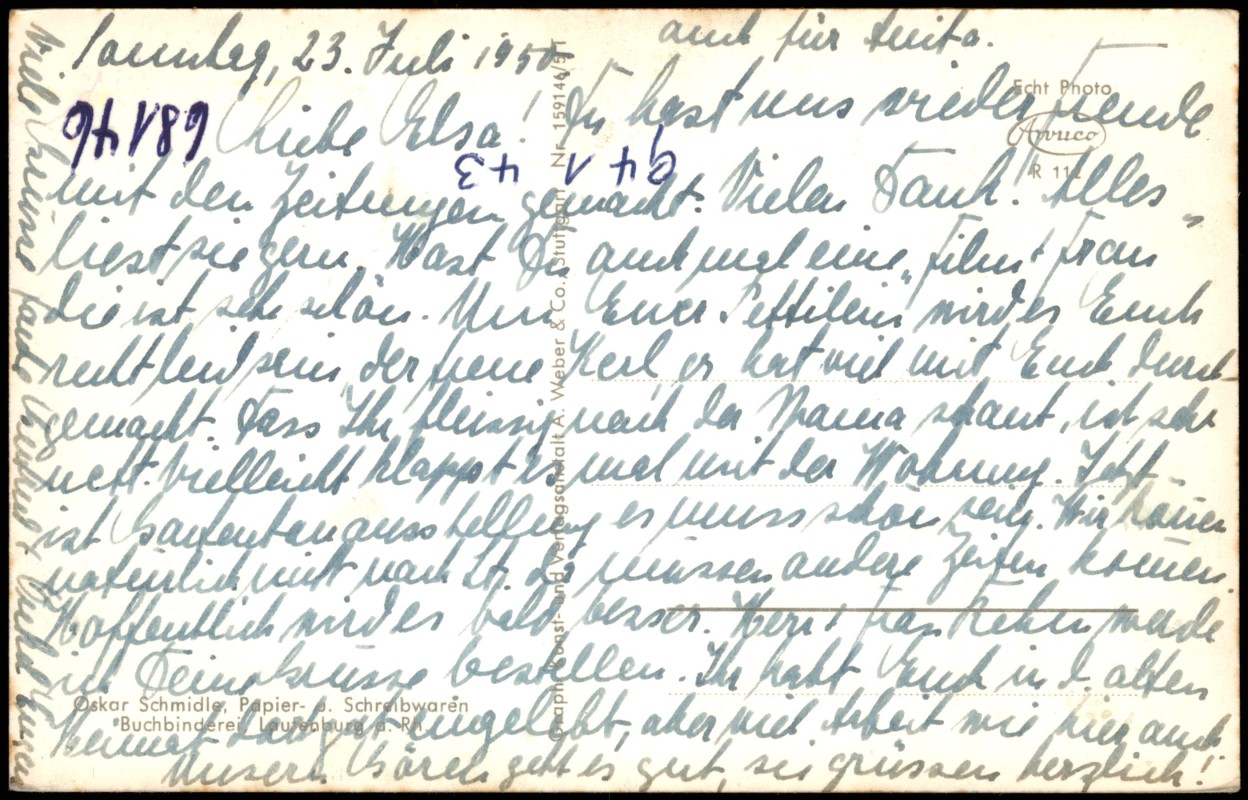 Sonntag, 23. Juli 1950
auch für Anita.
Liebe Elsa! Du hast uns wieder Freude
mit den Zeitungen gemacht. Vielen Dank! Alles
liest sie gern. Hast Du auch mal eine „Film + Frau"
die ist sehr schön. Um Euer wird es Euch
recht leid sein, der treue Kerl er hat viel mit Euch durch-
gemacht. Dass Ihr fleissig nach der Mama schaut, ist sehr
nett. Vielleicht klappt es mal mit der Wohnung. Jetzt
ist Gartenbauausstellung es muss schön sein. Wir können
natürlich nicht nach St. da müssen andere Zeiten kommen.
Hoffentlich wird es bald besser. Herr + Frau werde
ich Deine Grüsse bestellen. Ihr habt Euch in d. alten
Heimat eingelebt, aber viel Arbeit wie hier auch
Unsern geht es gut, sie grüssen herzlich!
Viele
68176
94 1 43
Echt Photo
Awuco
R 112
Graph. Kunst- und Verlagsanstalt A. Weber & Co., Stuttgart Nr. 159146/51
Oskar Schmidle, Papier- u. Schreibwaren
Buchbinderei, Laufenburg a. Rh.